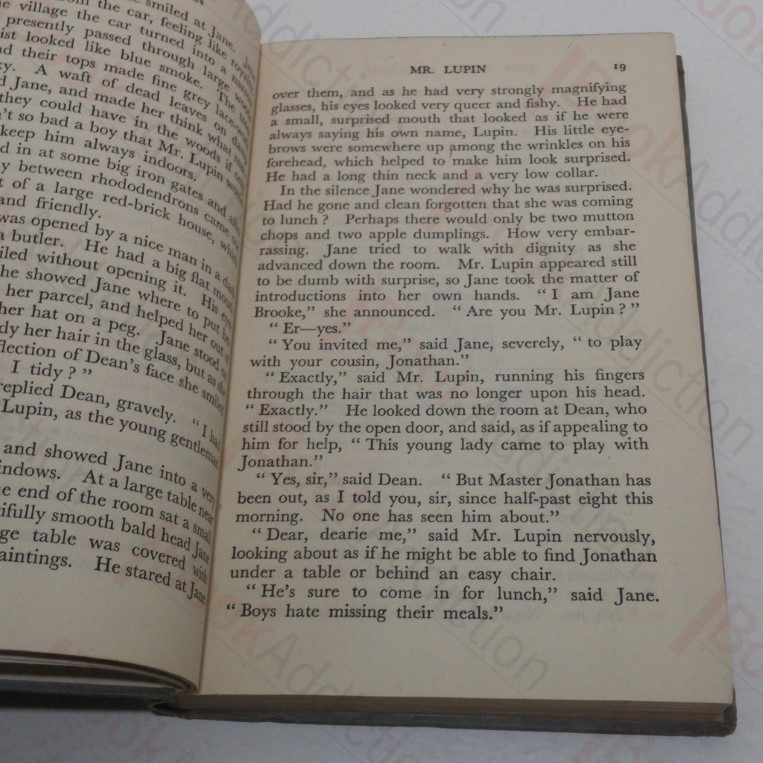 smiled at Jane.
from the car, feeling like
village the car turned into a
presently passed through large
ist looked like blue smoke. The
nd their tops made fine grey
A waft of dead leaves on
d Jane, and made her think what
they could have in the woods if
't so bad a boy that Mr. Lupin
keep him always indoors.
d in at some big iron gates and
y between rhododendrons came
t of a large red-brick house, which
and friendly.
was opened by a nice man in a
a butler. He had a big flat
iled without opening it. His eyes
he showed Jane where to put
her parcel, and helped her out
her hat on a peg. Jane stood on
dy her hair in the glass, but as she
flection of Dean's face she smiled
I tidy ? "
replied Dean, gravely. " I had
Lupin, as the young gentleman
and showed Jane into a very
indows. At a large table near
e end of the room sat a small
tifully smooth bald head Jane
ge table was covered with
aintings. He stared at Jane
MR. LUPIN 19
over them, and as he had very strongly magnifying
glasses, his eyes looked very queer and fishy. He had
a small, surprised mouth that looked as if he were
always saying his own name, Lupin. His little eye-
brows were somewhere up among the wrinkles on his
forehead, which helped to make him look surprised.
He had a long thin neck and a very low collar.
In the silence Jane wondered why he was surprised.
Had he gone and clean forgotten that she was coming
to lunch ? Perhaps there would only be two mutton
chops and two apple dumplings. How very embar-
rassing. Jane tried to walk with dignity as she
advanced down the room. Mr. Lupin appeared still
to be dumb with surprise, so Jane took the matter of
introductions into her own hands. " I am Jane
Brooke," she announced. " Are you Mr. Lupin ? "
" Er—yes."
" You invited me," said Jane, severely, " to play
with your cousin, Jonathan."
" Exactly," said Mr. Lupin, running his fingers
through the hair that was no longer upon his head.
" Exactly." He looked down the room at Dean, who
still stood by the open door, and said, as if appealing to
him for help, " This young lady came to play with
Jonathan."
" Yes, sir," said Dean. " But Master Jonathan has
been out, as I told you, sir, since half-past eight this
morning. No one has seen him about."
" Dear, dearie me," said Mr. Lupin nervously,
looking about as if he might be able to find Jonathan
under a table or behind an easy chair.
" He's sure to come in for lunch," said Jane.
" Boys hate missing their meals."